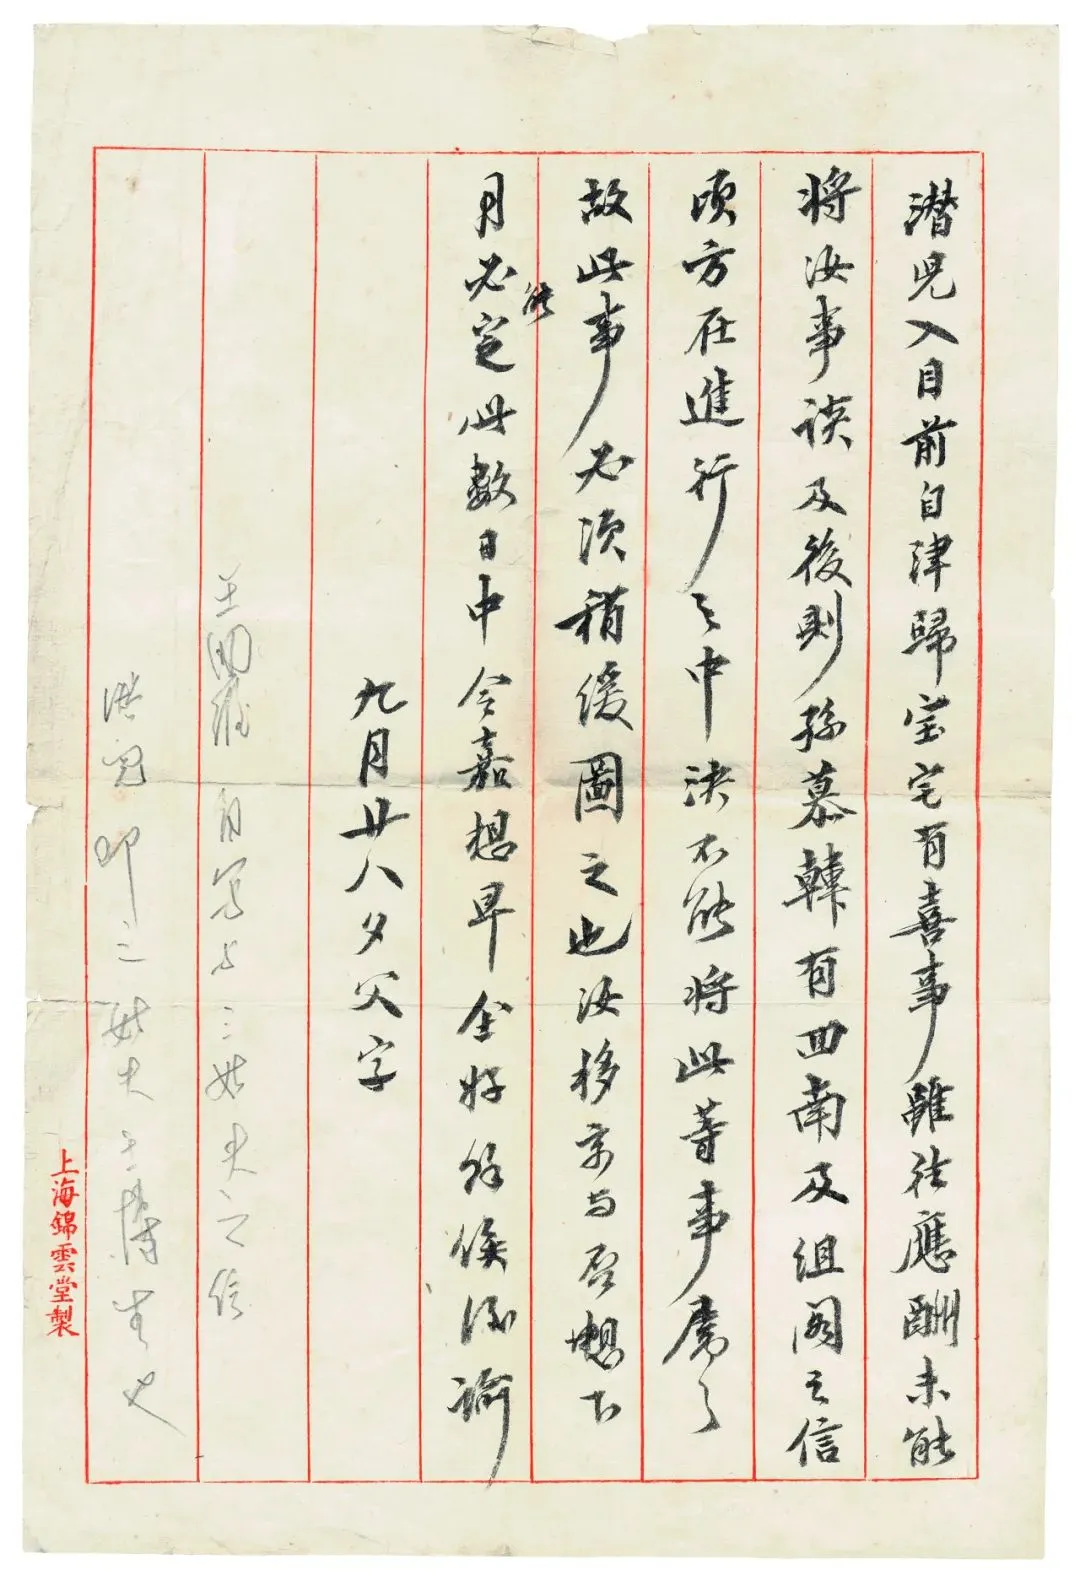 潛兒入目前自津歸宝宅有喜事雖往應酬未能
將汝事談及後則孫慕韓有四南及組閣之信
頃方在進行之中決不能將此等事屬之
故此事必須稍緩圖之也汝移京与否想下
月必能定此數日中令嘉想早全好餘俟後諭
九月廿八夕父字
王国維自写与三姑丈之信
潛兒即三姑丈
上海錦雲堂製